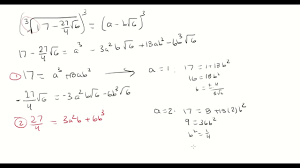 (∛(17 - 27/4 √6))³ = (a - b√6)³
17 - 27/4 √6 = a³ - 3a²b√6 + 18ab² - 6b³√6
① 17 = a³ + 18ab²
- 27/4 √6 = -3a²b√6 - 6b³√6
② 27/4 = 3a²b + 6b³
a = 1: 17 = 1 + 18b²
16 = 18b²
a = 2: 17 = 8 + 18(2)b²
9 = 36b²
b² = 1/4